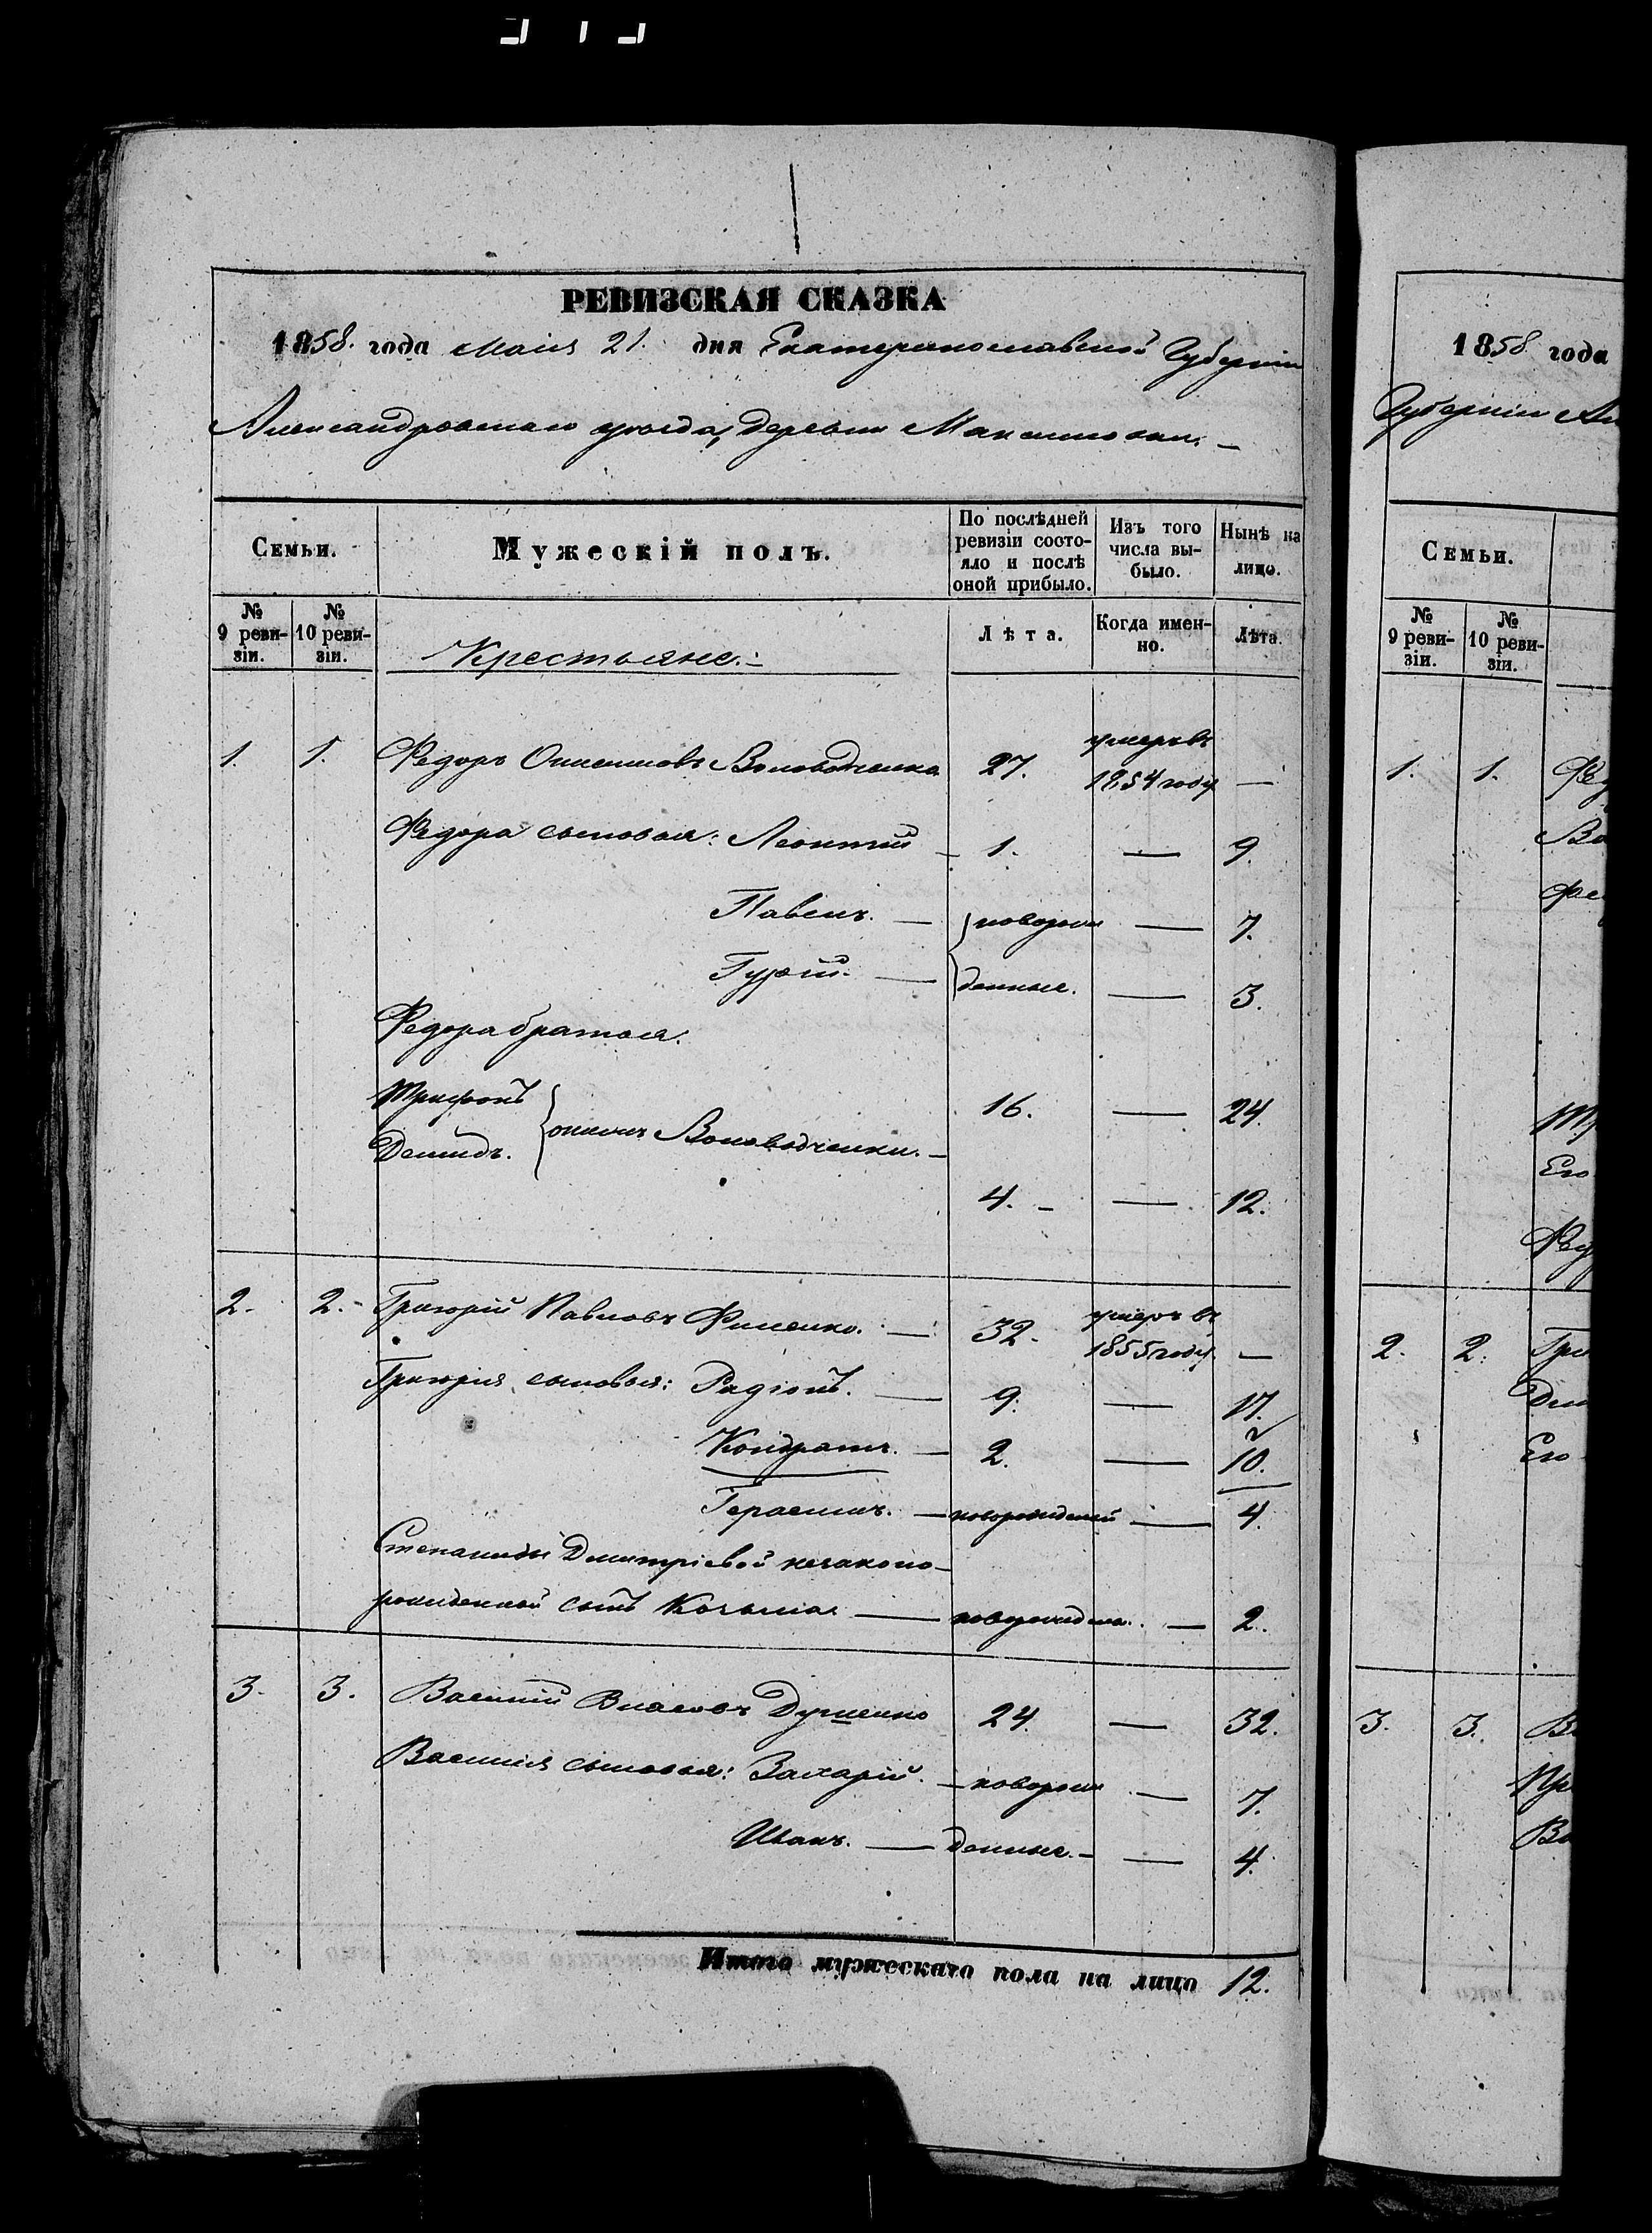 РЕВИЗСКАЯ СКАЗКА
1858. года Маія 21. дня Екатеринославской Губерніи
Александровскаго уѣзда, деревни Максимовки. —
Семьи.
Мужескій полъ.
По послѣдней ревизіи состояло и послѣ оной прибыло.
Изъ того числа выбыло.
Нынѣ на лицо.
№ 9 ревизіи.
№ 10 ревизіи.
Крестьяне:
Лѣта.
Когда именно.
Лѣта.
1. 1. Федоръ Онисимовъ Воловодченко 27. умеръ въ 1854 году —
Федора сыновья: Леонтій — 1. — 9.
Павелъ. — новорож — 7.
Гурій. — денные. — 3.
Федора братья:
Трифонъ 16. — 24.
Демидъ. Воловодченки. —
4. — — 12.
2. 2. Григорій Павловъ Фисенко. — 32. умеръ въ 1855 году. —
Григорія сыновья: Радіонъ. — 9. — 17.
Кондратъ. — 2. — 10.
Герасимъ. — новорожденный — 4.
Степаниды Дмитріевой незаконо-
рожденной сынъ Козьма — новорожден. — 2.
3. 3. Василій Власовъ Душенко 24. — 32.
Василія сыновья: Захарій. — новорож — 7.
Иванъ. — денные. — — 4.
Итого мужескаго пола на лицо 12.
1858 года
Губерніи
Семьи.
№ 9 ревизіи.
№ 10 ревизіи.
1. 1.
Его
2. 2.
Его
3. 3.